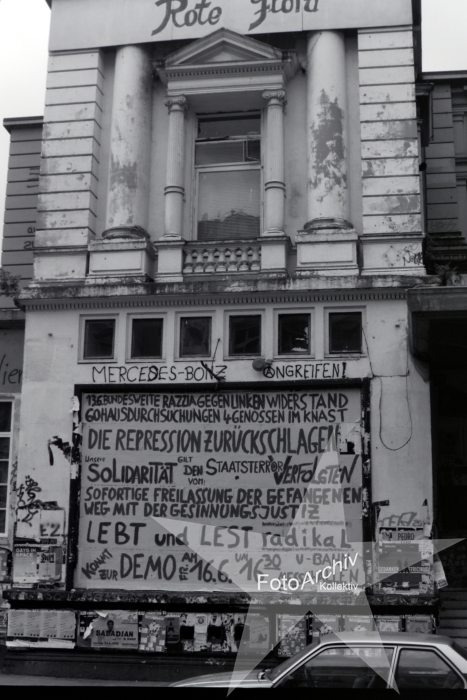 Rote Flora
MERCEDES-BONZ ANGREIFEN!
13.6. BUNDESWEITE RAZZIA GEGEN LINKEN WIDERSTAND
60 HAUSDURCHSUCHUNGEN 4 GENOSSEN IM KNAST
DIE REPRESSION ZURÜCKSCHLAGEN
Unsere SOLIDARITÄT GILT DEN VOM STAATSTERROR VERFOLGTEN
SOFORTIGE FREILASSUNG DER GEFANGENEN
WEG MIT DER GESINNUNGSJUSTIZ
LEBT und LEST radikal
KOMMT ZUR DEMO AM FR. 16.6. UM 16.30 U-BAHN
FotoArchiv
Kollektiv
GAYS IN SPACE
PEDRO
BABADIAN